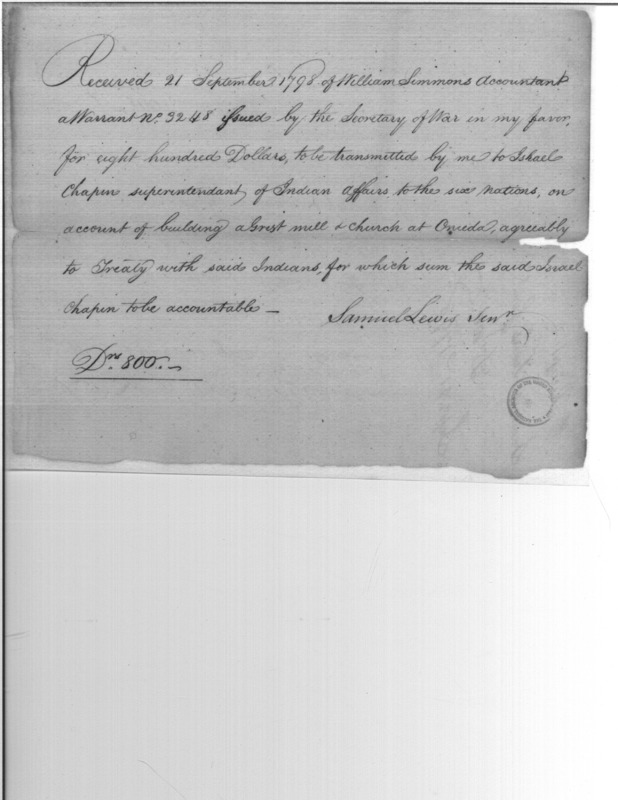 Received 21 September 1798 of William Simmons Accountant
a Warrant No. 3248 issued by the Secretary of War in my favor,
for eight hundred Dollars, to be transmitted by me to Israel
Chapin superintendant, of Indian affairs to the six nations, on
account of building a Grist mill & church at Oneida, agreeably
to Treaty with said Indians, for which sum the said Israel
Chapin to be accountable —
Samuel Lewis Senr
Drs 800.—